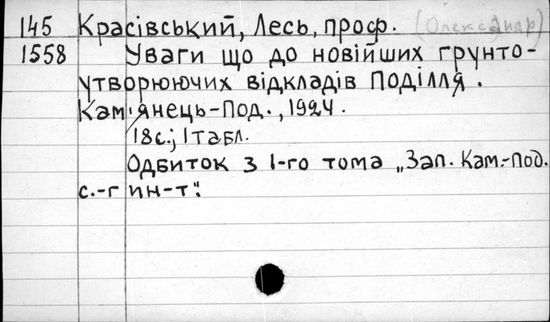 145 Красівський, Лесь, проф. (Олександр)
1558 Уваги що до новійших грунто-
утворюючих відкладів Поділля.
Кам'янець-Под., 1924.
18с.; 1табл.
Одбиток з 1-го тома „Зап. Кам.-Под.
с.-г ин-т".